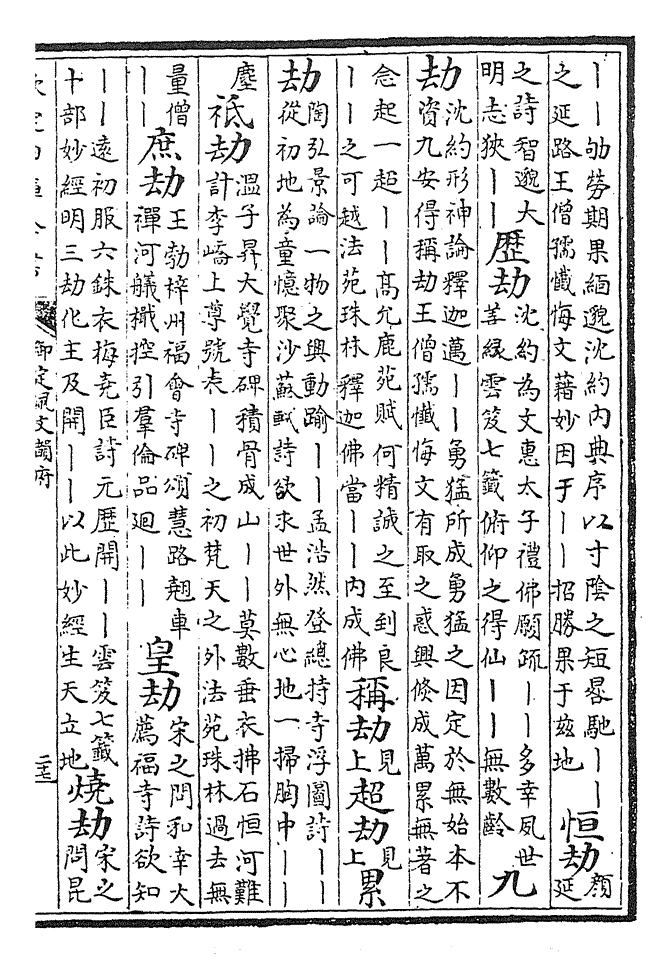 丨丨劬勞期果緬邈沈約內典序以寸陰之短晷馳丨丨
之延路王僧孺懺悔文藉妙因于丨丨招勝果于兹地
恒劫
顔
延
之詩智邈大
明志狹丨丨
歷劫
沈約為文惠太子禮佛願疏丨丨多幸夙世
善緣雲笈七籤俯仰之得仙丨丨無數齡
九
劫
沈約形神論釋迦邁丨丨勇猛所成勇猛之因定於無始本不
資九安得稱劫王僧孺懺悔文有取之惑興倏成萬累無著之
念起一超丨丨高允鹿苑賦何精誠之至到良
丨丨之可越法苑珠林釋迦佛當丨丨內成佛
稱劫
見
上
超劫
見
上
累
劫
陶弘景論一物之興動踰丨丨孟浩然登總持寺浮圖詩丨丨
從初地為童憶聚沙蘇軾詩欲求世外無心地一掃胸中丨丨
塵
祇劫
溫子昇大覺寺碑積骨成山丨丨莫數垂衣拂石恒河難
計李嶠上尊號表丨丨之初梵天之外法苑珠林過去無
量僧
丨丨
庶劫
王勃梓州福會寺碑頌慧路翹車
禪河艤檝控引羣倫品廻丨丨
皇劫
宋之問和幸大
薦福寺詩欲知
丨丨遠初服六銖衣梅堯臣詩元歷開丨丨雲笈七籤
十部妙經明三劫化主及開丨丨以此妙經生天立地
燒劫
宋之
問昆
御定佩文韻府
二十七